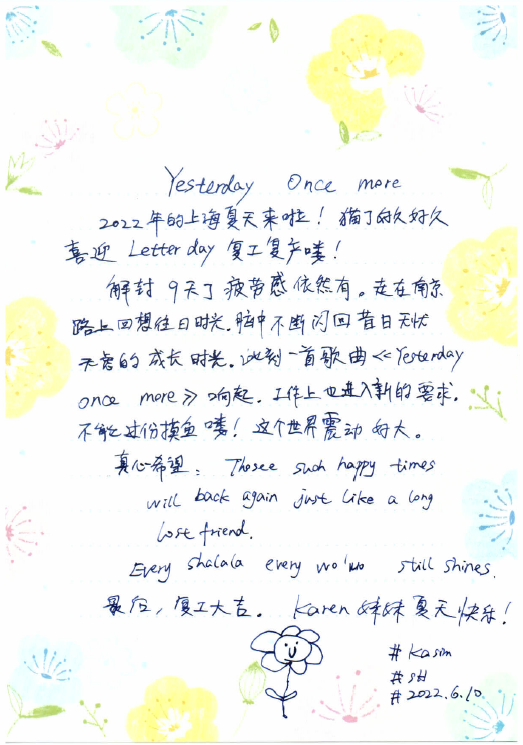 Yesterday Once more
2022年的上海夏天来啦！猫了好久好久
喜迎 Letter day 复工复产喽！
解封 9天了疲劳感依然有。走在南京
路上回想往日时光.脑中不断闪回昔日无忧
无虑的成长时光.此刻一首歌曲≪Yesterday
once more≫响起.工作上也进入新的要求.
不能过份摸鱼喽！这个世界震动好大。
真心希望： Those such happy times
will back again just like a long
lost friend.
Every shalala every wo'wo still shines.
最后，复工大吉。 Karen 妹妹夏天快乐！
# Kasim
# SH
# 2022.6.10